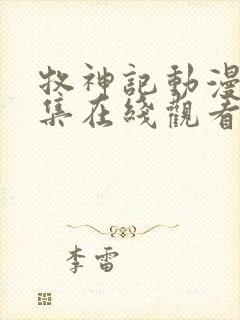 牧神記動漫
集在綫觀看
李雷